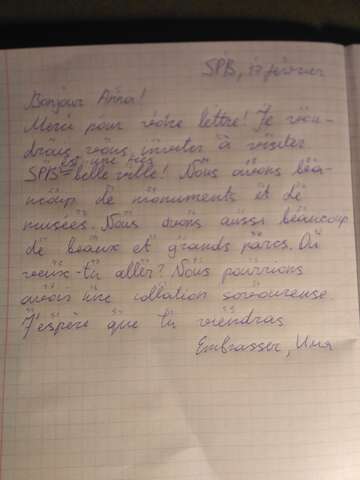 SPB, 17 février
Bonjour Anna!
Merci pour votre lettre! Je vou-
drais vous inviter à visiter
est une très
SPB belle ville! Nous avons beau-
coup de monuments et de
musées. Nous avons aussi beaucoup
de beaux et grands parcs. Où
veux-tu aller? Nous pourrions
avoir une collation savoureuse.
J'espère que tu viendras
Embrasser,